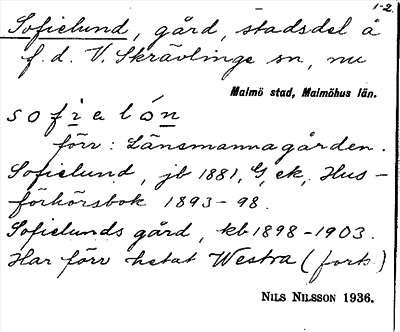 1-2.
Sofielund, gård, stadsdel å
f.d. V. Skrävlinge sn, nu
Malmö stad, Malmöhus län.
sofialón
förr: Länsmannagården.
Sofielund, jb 1881, G, ek, Hus-
förhörsbok 1893-98.
Sofielunds gård, kb 1898-1903.
Har förr hetat Westra (forts.)
NILS NILSSON 1936.